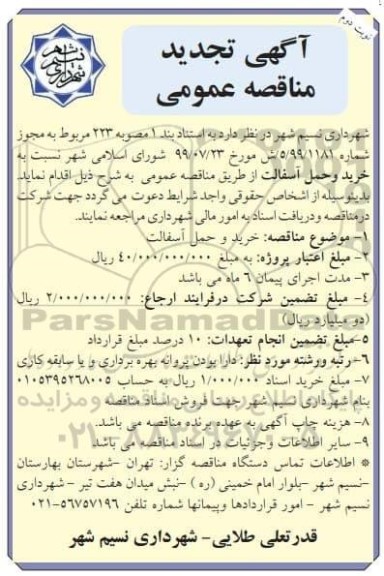 نوبت دوم
شهرداری نسیم شهر
آگهی تجدید
مناقصه عمومی
شهرداری نسیم شهر در نظر دارد به استناد بند ۱ مصوبه ۲۲۳ مربوط به مجوز
شماره ۵/۹۹/۱۱۸۱/ش مورخ ۹۹/۰۷/۲۳ شورای اسلامی شهر نسبت به
خرید وحمل آسفالت از طریق مناقصه عمومی به شرح ذیل اقدام نماید.
بدینوسیله از اشخاص حقوقی واجد شرایط دعوت می گردد جهت شرکت
درمناقصه ودریافت اسناد به امور مالی شهرداری مراجعه نمایند.
۱- موضوع مناقصه: خرید و حمل آسفالت
۲- مبلغ اعتبار پروژه: به مبلغ ۴۰/۰۰۰/۰۰۰/۰۰۰ ریال
۳- مدت اجرای پیمان ۶ ماه می باشد
۴- مبلغ تضمین شرکت درفرایند ارجاع: ۲/۰۰۰/۰۰۰/۰۰۰ ریال
(دو میلیارد ریال)
۵-مبلغ تضمین انجام تعهدات: ۱۰ درصد مبلغ قرارداد
۶- رتبه ورشته مورد نظر: دارا بودن پروانه بهره برداری و یا سابقه کاری
۷- مبلغ خرید اسناد ۱/۰۰۰/۰۰۰ ریال به حساب ۰۱۰۵۳۹۵۲۶۸۰۰۵
بنام شهرداری نسیم شهر جهت فروش اسناد مناقصه
۸- هزینه چاپ آگهی به عهده برنده مناقصه می باشد.
۹- سایر اطلاعات وجزئیات در اسناد مناقصه می باشد.
* اطلاعات تماس دستگاه مناقصه گزار: تهران -شهرستان بهارستان
-نسیم شهر -بلوار امام خمینی (ره) -نبش میدان هفت تیر - شهرداری
نسیم شهر - امور قراردادها وپیمانها شماره تلفن ۵۶۷۵۷۱۹۶-۰۲۱
قدرتعلی طلایی- شهرداری نسیم شهر
ParsNamadData